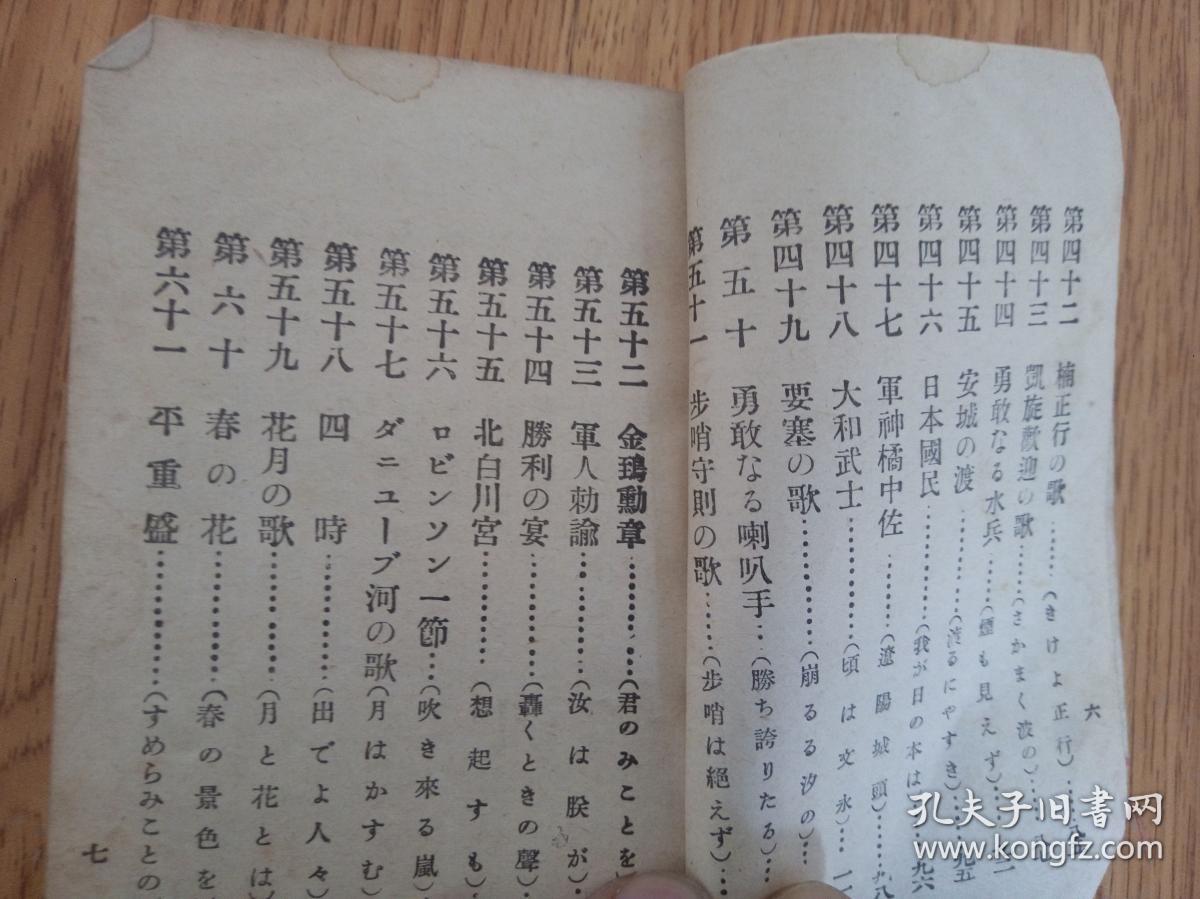 六
第四十二 楠正行の歌……(きけよ正行)……
第四十三 凱旋歡迎の歌……(さかまく波の)……
第四十四 勇敢なる水兵……(煙も見えず)……
第四十五 安城の渡………(渡るにやすき)……九五
第四十六 日本國民………(我が日の本は……九六
第四十七 軍神橘中佐……(遼陽城頭)……九八
第四十八 大和武士………(頃は文永)……
第四十九 要塞の歌………(崩るる汐の)……
第五十 勇敢なる喇叭手…(勝ち誇りたる)…
第五十一 步哨守則の歌……(步哨は絕えず)…
第五十二 金鵄勳章………(君のみことを
第五十三 軍人勅諭………(汝は朕が)
第五十四 勝利の宴………(轟くときの聲)
第五十五 北白川宮………(想起すも)
第五十六 ロビンソン一節…(吹き來る嵐
第五十七 ダニューブ河の歌(月はかすむ)
第五十八 四時………(出でよ人々)
第五十九 花月の歌………(月と花とは)
第六十 春の花………(春の景色を
第六十一 平重盛………(すめらみことの
七
孔夫子旧书网
www.kongfz.com